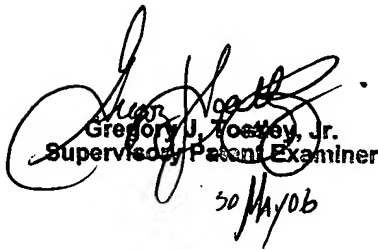 Gregory J. Toatley, Jr.
Supervisory Patent Examiner
30 MAY 06